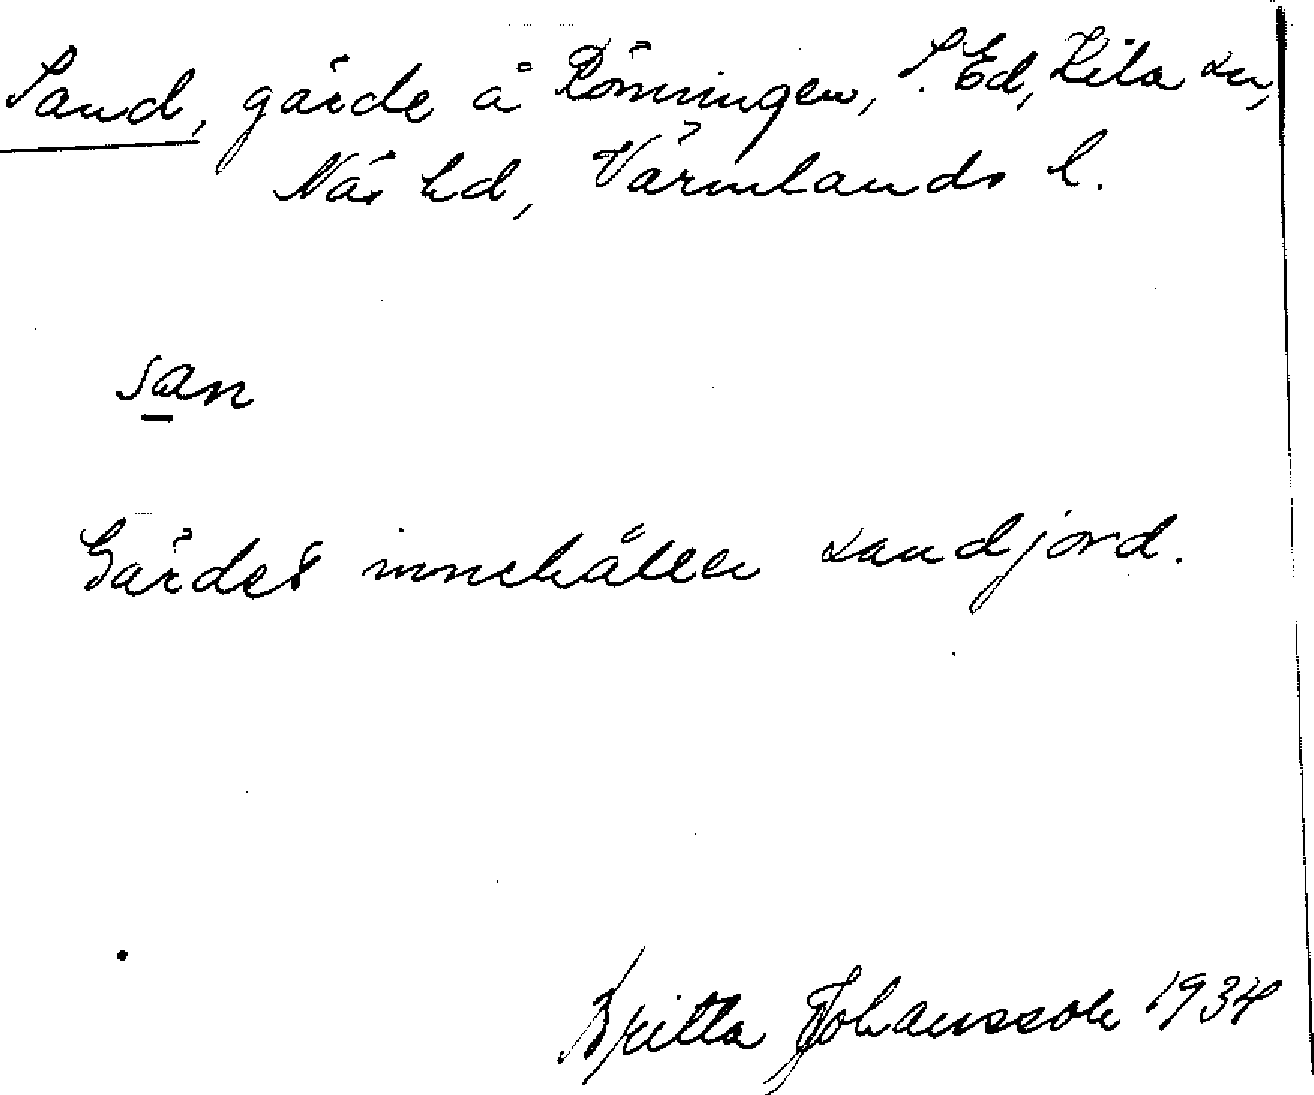 Sand, gärde å Rönningen, S. Ed, Kila sn,
Näs hd, Värmlands l.
san
Gärdet innehåller sandjord.
Britta Johansson 1934